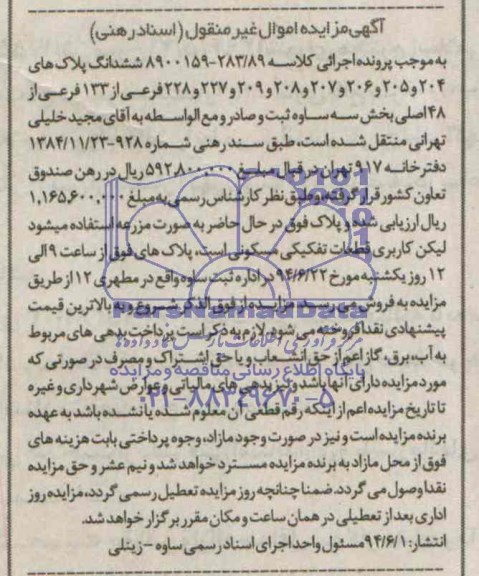 آگهی مزایده اموال غیر منقول (اسناد رهنی)
به موجب پرونده اجرائی کلاسه ۲۸۳/۸۹-۸۹۰۰۱۵۹ ششدانگ پلاک های
۲۰۴ و ۲۰۵ و ۲۰۶ و ۲۰۷ و ۲۰۸ و ۲۰۹ و ۲۲۷ و ۲۲۸ فرعی از ۱۳۳ فرعی از
۴۸ اصلی بخش سه ساوه ثبت و صادر و مع الواسطه به آقای مجید خلیلی
تهرانی منتقل شده است، طبق سند رهنی شماره ۹۲۸-۱۳۸۴/۱۱/۲۳
دفترخانه ۹۱۷ تهران در قبال مبلغ ۵۹۲,۸۰۰,۰۰۰ ریال در رهن صندوق
تعاون کشور قرار گرفته و طبق نظر کارشناس رسمی به مبلغ ۱,۱۶۵,۶۰۰,۰۰۰
ریال ارزیابی شده و پلاک فوق در حال حاضر به صورت مزرعه استفاده میشود
لیکن کاربری قطعات تفکیکی مسکونی است، پلاک های فوق از ساعت ۹ الی
۱۲ روز یکشنبه مورخ ۹۴/۶/۲۲ در اداره ثبت ساوه واقع در مطهری ۱۲ از طریق
مزایده به فروش می رسد مزایده از فوق الذکر شروع و به بالاترین قیمت
پیشنهادی نقدا فروخته می شود. لازم به ذکر است پرداخت بدهی های مربوط
به آب، برق، گاز اعم از حق انشعاب و یا حق اشتراک و مصرف در صورتی که
مورد مزایده دارای آنها باشد و نیز بدهی های مالیاتی و عوارض شهرداری و غیره
تا تاریخ مزایده اعم از اینکه رقم قطعی آن معلوم شده یا نشده باشد به عهده
برنده مزایده است و نیز در صورت وجود مازاد، وجوه پرداختی بابت هزینه های
فوق از محل مازاد به برنده مزایده مسترد خواهد شد و نیم عشر و حق مزایده
نقدا وصول می گردد. ضمنا چنانچه روز مزایده تعطیل رسمی گردد، مزایده روز
اداری بعد از تعطیلی در همان ساعت و مکان مقرر برگزار خواهد شد.
انتشار: ۹۴/۶/۱ مسئول واحد اجرای اسناد رسمی ساوه - زینلی
ParsNamadData
پایگاه اطلاع رسانی مناقصه و مزایده
۰۲۱-۸۸۳۴۹۶۷۰-۵